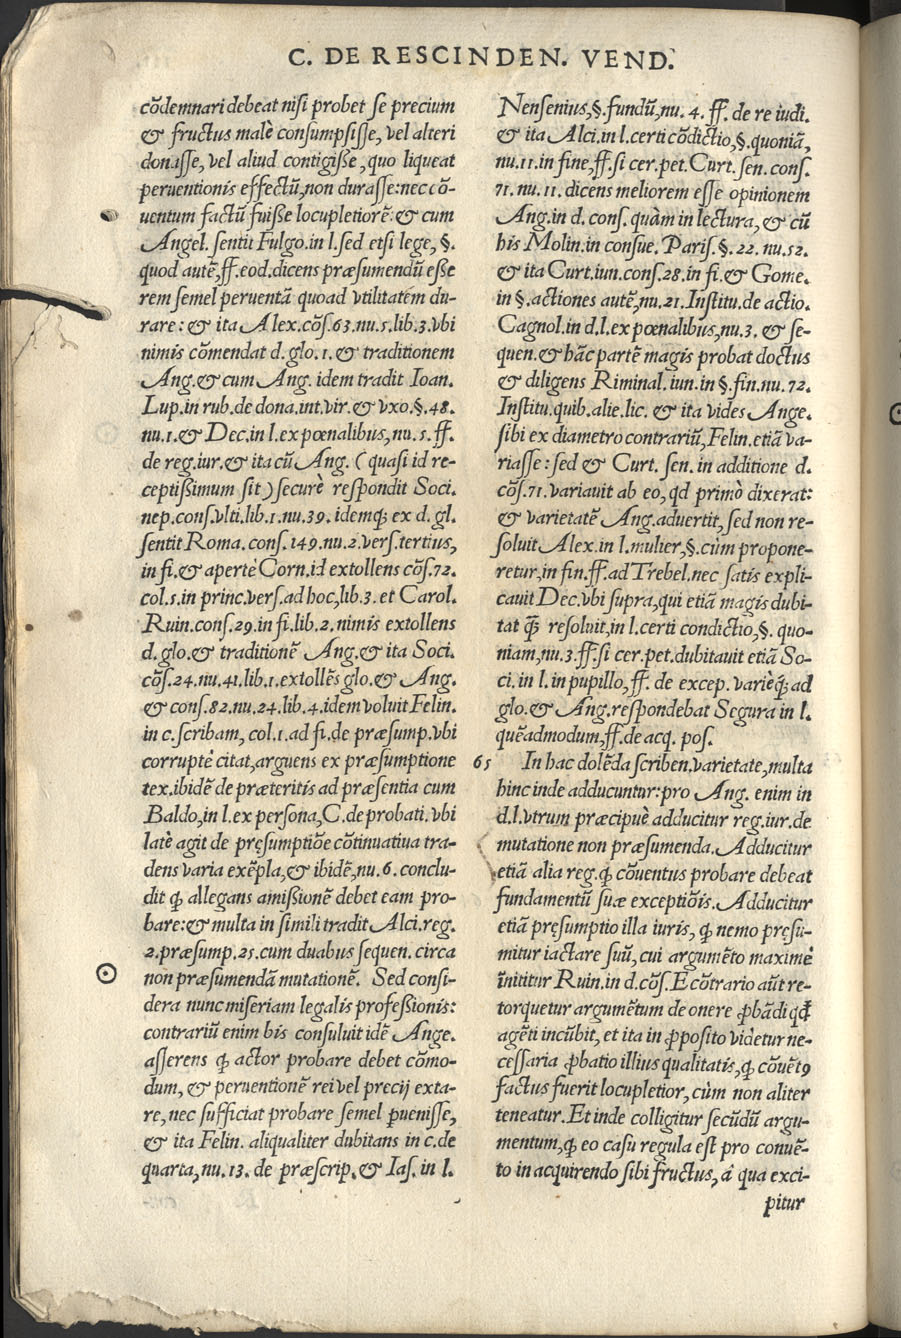 C. DE RESCINDEN. VEND.
cōdemnari debeat nisi probet se precium
& fructus malè consumpsisse, vel alteri
donasse, vel aliud contigisse, quo liqueat
peruentionis effectū, non durasse: nec cō-
uentum factū fuisse locupletiorē: & cum
Angel. sentit Fulgo. in l. sed etsi lege, §.
quod autē, ff. eod. dicens præsumendū esse
rem semel peruentā quoad vtilitatem du-
rare: & ita Alex. cōs. 63. nu. 5. lib. 3. vbi
nimis cōmendat d. glo. 1. & traditionem
Ang. & cum Ang. idem tradit Ioan.
Lup. in rub. de dona. int. vir. & vxo. §. 48.
nu. 1. & Dec. in l. ex pœnalibus, nu. 5. ff.
de reg. iur. & ita cū Ang. (quasi id re-
ceptissimum sit) securè respondit Soci.
nep. cons. vlti. lib. 1. nu. 39. idemq; ex d. gl.
sentit Roma. cons. 149. nu. 2. vers. tertius,
in fi. & apertè Corn. id extollens cōs. 72.
col. 5. in princ. vers. ad hoc, lib. 3. et Carol.
Ruin. cons. 29. in fi. lib. 2. nimis extollens
d. glo. & traditionē Ang. & ita Soci.
cōs. 24. nu. 41. lib. 1. extollēs glo. & Ang.
& cons. 82. nu. 24. lib. 4. idem voluit Felin.
in c. scribam, col. 1. ad fi. de præsump. vbi
corruptè citat, arguens ex præsumptione
tex. ibidē de præteritis ad præsentia cum
Baldo, in l. ex persona, C. de probati. vbi
latè agit de pręsumptiōe cōtinuatiua tra-
dens varia exēpla, & ibidē, nu. 6. conclu-
dit ꝙ allegans amissionē debet eam pro-
bare: & multa in simili tradit Alci. reg.
2. præsump. 25. cum duabus sequen. circa
non præsumendā mutationē. Sed consi-
dera nunc miseriam legalis professionis:
contrariū enim bis consuluit idē Ange.
asserens ꝙ actor probare debet cōmo-
dum, & peruentionē rei vel precij exta-
re, nec sufficiat probare semel ꝑuenisse,
& ita Felin. aliqualiter dubitans in c. de
quarta, nu. 13. de præscrip. & Ias. in l.
Nensenius, §. fundū, nu. 4. ff. de re iudi.
& ita Alci. in l. certi cōdictio, §. quoniā,
nu. 11. in fine, ff. si cer. pet. Curt. sen. cons.
71. nu. 11. dicens meliorem esse opinionem
Ang. in d. cons. quàm in lectura, & cū
his Molin. in consue. Paris. §. 22. nu. 52.
& ita Curt. iun. cons. 28. in fi. & Gome.
in §. actiones autē, nu. 21. Institu. de actio.
Cagnol. in d. l. ex pœnalibus, nu. 3. & se-
quen. & hāc partē magis probat doctus
& diligens Riminal. iun. in §. fin. nu. 72.
Institu. quib. alie. lic. & ita vides Ange.
sibi ex diametro contrariū, Felin. etiā va-
riasse: sed & Curt. sen. in additione d.
cōs. 71. variauit ab eo, qd primò dixerat:
& varietatē Ang. aduertit, sed non re-
soluit Alex. in l. mulier, §. cùm propone-
retur, in fin. ff. ad Trebel. nec satis expli-
cauit Dec. vbi supra, qui etiā magis dubi-
tat q̄ resoluit, in l. certi condictio, §. quo-
niam, nu. 3. ff. si cer. pet. dubitauit etiā So-
ci. in l. in pupillo, ff. de excep. varièq; ad
glo. & Ang. respondebat Segura in l.
quēadmodum, ff. de acq. pos.
65 In hac dolēda scriben. varietate, multa
hinc inde adducuntur: pro Ang. enim in
d. l. vtrum præcipuè adducitur reg. iur. de
mutatione non præsumenda. Adducitur
etiā alia reg. ꝙ cōuentus probare debeat
fundamentū suæ exceptiōis. Adducitur
etiā præsumptio illa iuris, ꝙ nemo pręsu-
mitur iactare suū, cui argumēto maximè
īnititur Ruin. in d. cōs. E cōtrario aūt re-
torquetur argumētum de onere ꝓbādi qđ
agēti incūbit, et ita in ꝓposito videtur ne-
cessaria ꝓbatio illius qualitatis, ꝙ cōuētꝰ
factus fuerit locupletior, cùm non aliter
teneatur. Et inde colligitur secūdū argu-
mentum, ꝙ eo casu regula est pro conuē-
to in acquirendo sibi fructus, à qua exci-
pitur